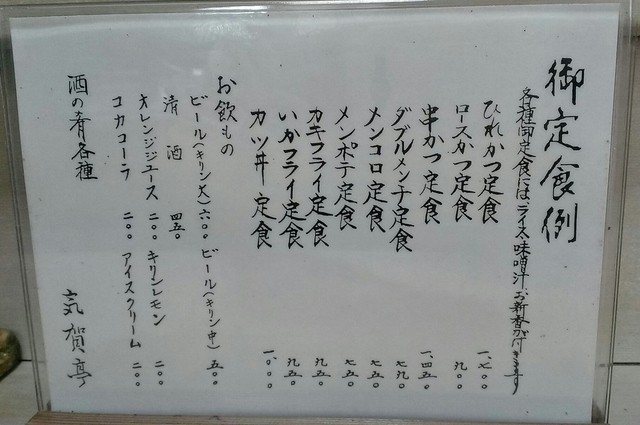 御定食例
各種御定食には、ライス、味噌汁、お新香が付きます
ひれかつ定食 一、七〇〇
ロースかつ定食 九〇〇
串かつ定食 一、四五〇
ダブルメンチ定食 七九〇
メンコロ定食 七五〇
メンポテ定食 七五〇
カキフライ定食 九五〇
いかフライ定食 九五〇
カツ丼定食 一、〇〇〇
お飲もの
ビール(キリン大) 六〇〇 ビール(キリン中) 五〇〇
清酒 四五〇
オレンジジュース 二〇〇 キリンレモン 二〇〇
コカコーラ 二〇〇 アイスクリーム 二〇〇
酒の肴各種
気賀亭